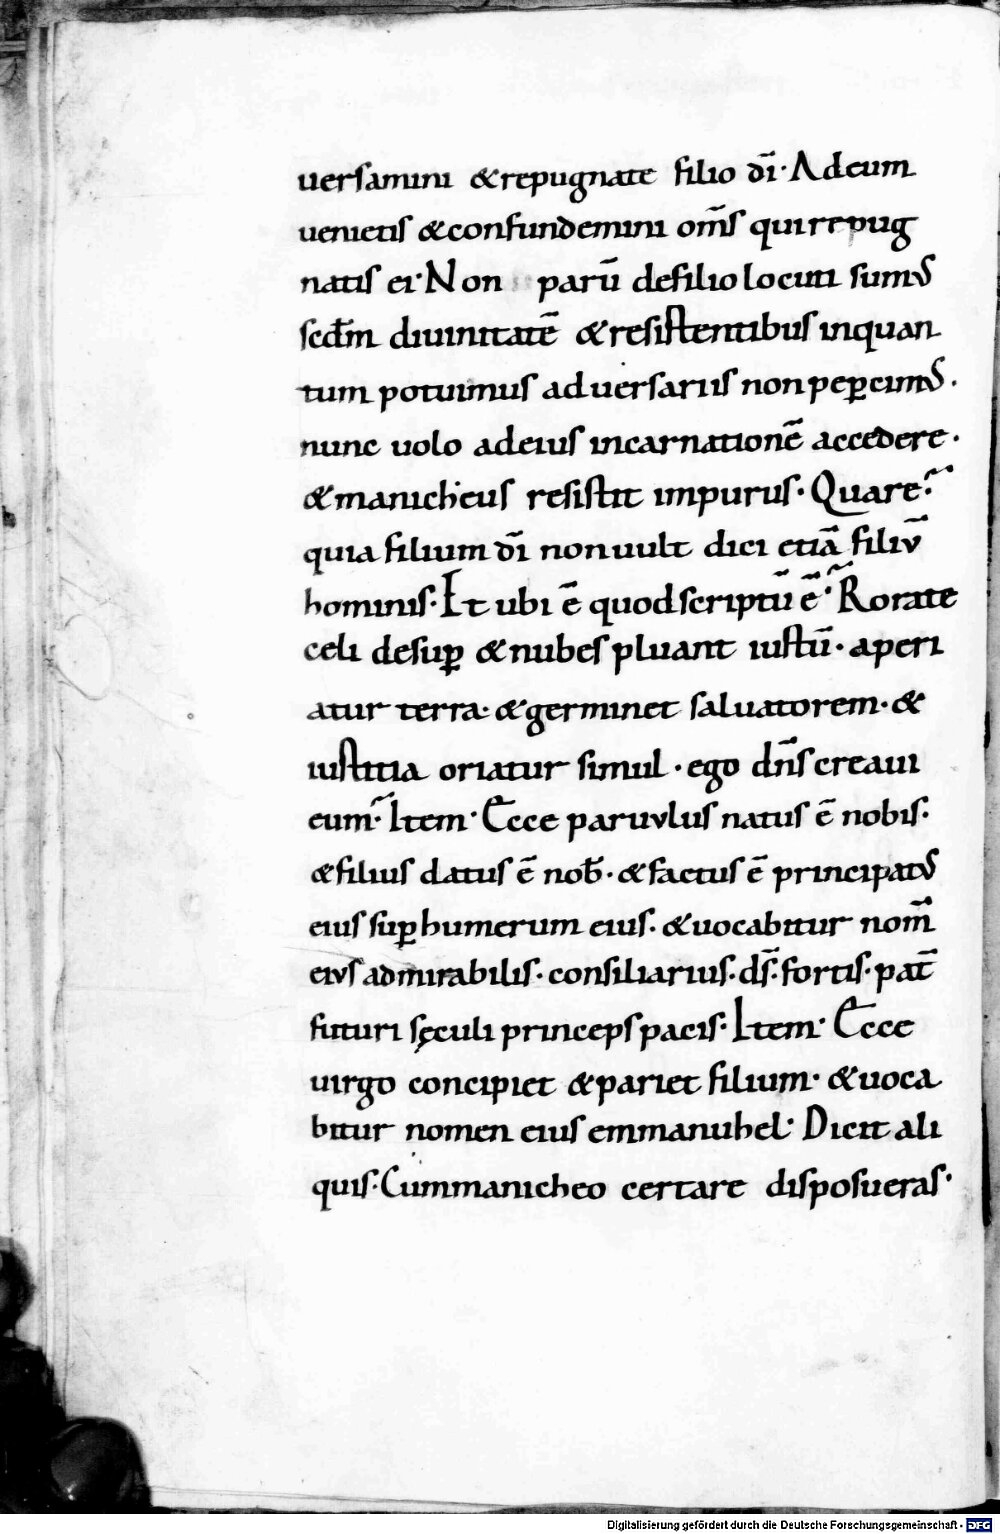 uersamini & repugnate filio dī· Adeum
uenietis & confundemini om̅s qui repug
natis ei· Non parū de filio locuti sumus
scđm diuinitatē & resistentibus inquan
tum potuimus aduersariis non peꝑcimus·
nunc uolo adeius incarnationē accedere·
& manicheus resistit impurus· Quare·
quia filium dī non uult dici etiā filiū
hominis· Et ubi ē quod scriptū ē· Rorate
celi desuꝑ & nubes pluant iustū· aperi
atur terra· & germinet saluatorem· &
iustitia oriatur simul· ego dn̄s creaui
eum· Item· Ecce paruulus natus ē nobis·
& filius datus ē nob̄· & factus ē principatus
eius suꝑ humerum eius· & uocabitur nom̄
eius admirabilis· consiliarius· ds̄· fortis· pat̄
futuri sęculi princeps pacis· Item· Ecce
uirgo concipiet & pariet filium· & uoca
bitur nomen eius emmanuhel· Dicit ali
quis· Cum manicheo certare disposueras·
Digitalisierung gefördert durch die Deutsche Forschungsgemeinschaft - DFG